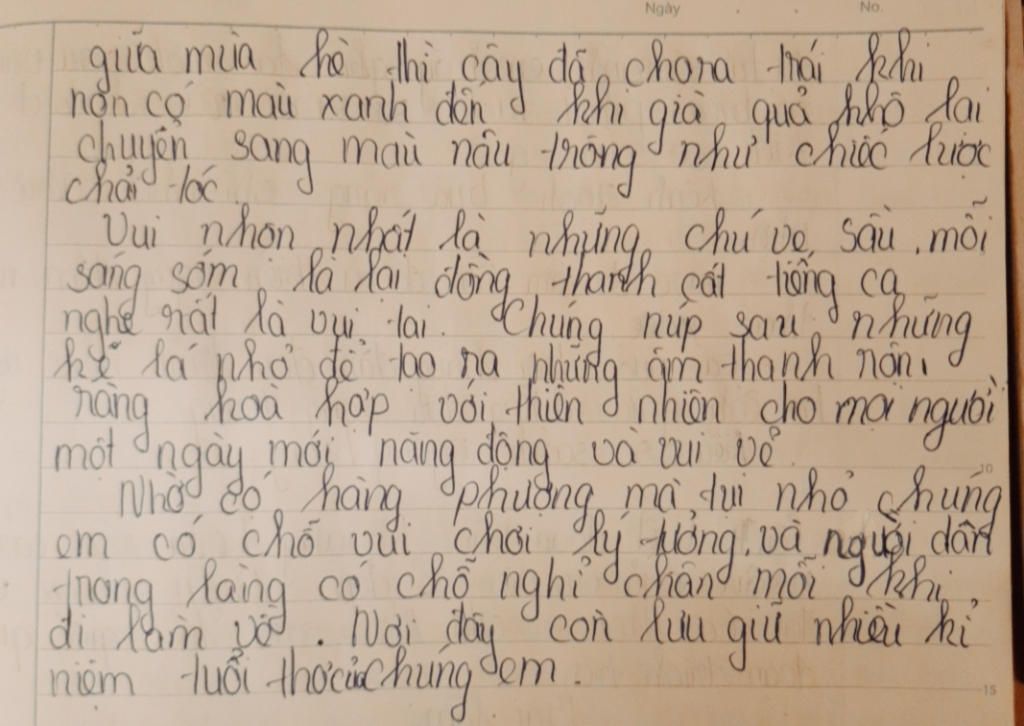 Ngày . . No.
giữa mùa hè thì cây đã chora trái khi
non có màu xanh đến khi già quả khô lại
chuyển sang màu nâu trông như chiếc lược
chải tóc.
Vui nhộn nhất là những chú ve sầu, mỗi
sáng sớm là lại đồng thanh cất tiếng ca
nghe rất là vui tai. Chúng núp sau những
kẽ lá nhỏ để tạo ra những âm thanh rộn
ràng hoà hợp với thiên nhiên cho mọi người
một ngày mới năng động và vui vẻ.
10
Nhờ có hàng phượng mà tụi nhỏ chúng
em có chỗ vui chơi lý tưởng, và người dân
trong làng có chỗ nghỉ chân mỗi khi
đi làm về. Nơi đây còn lưu giữ nhiều kỉ
niệm tuổi thơ của chúng em.
15